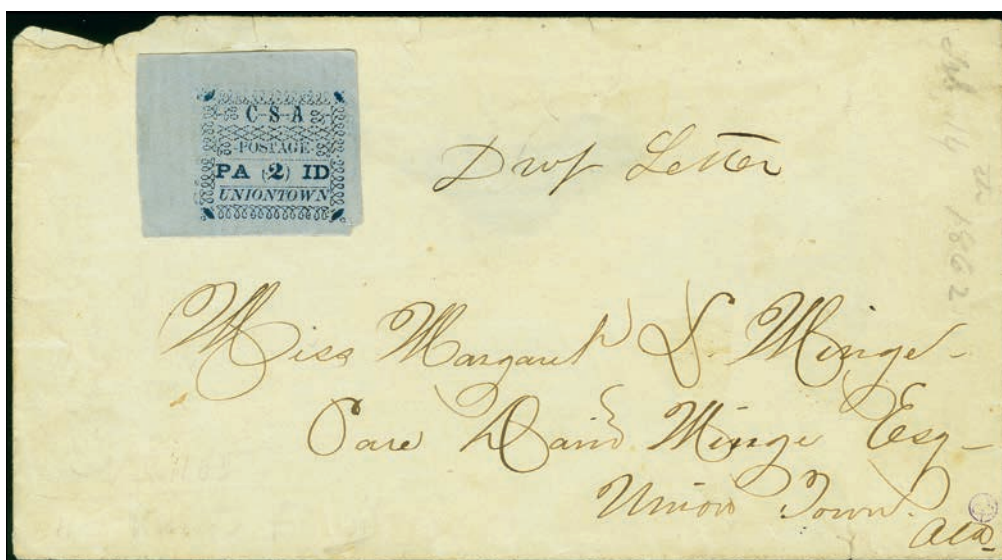 C-S-A
POSTAGE
PA (2) ID
UNIONTOWN
Drop Letter
Miss Margaret L. Minge
Care David Minge Esq
Union Town
Ala
1862